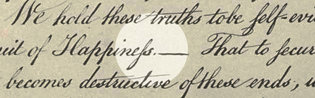 We hold these truths to be ſelf-evi
uit of Happineſs.— That to secur
becomes destructive of these ends, u